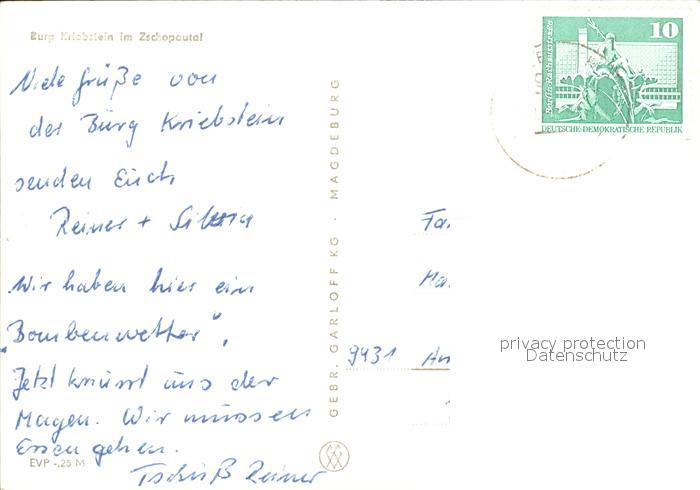 Burg Kriebstein im Zschopautal
Viele Grüße von
der Burg Kriebstein
senden Euch
Reiner + Silvia
Wir haben hier ein
„Bombenwetter",
Jetzt knurrt uns der
Magen. Wir müssen
Essen gehen.
Tschüß Reiner
EVP -,25 M
GEBR. GARLOFF KG · MAGDEBURG
10
Berlin-Rathausstraße
DEUTSCHE DEMOKRATISCHE REPUBLIK
Fa.
Ma.
9431 An
privacy protection
Datenschutz